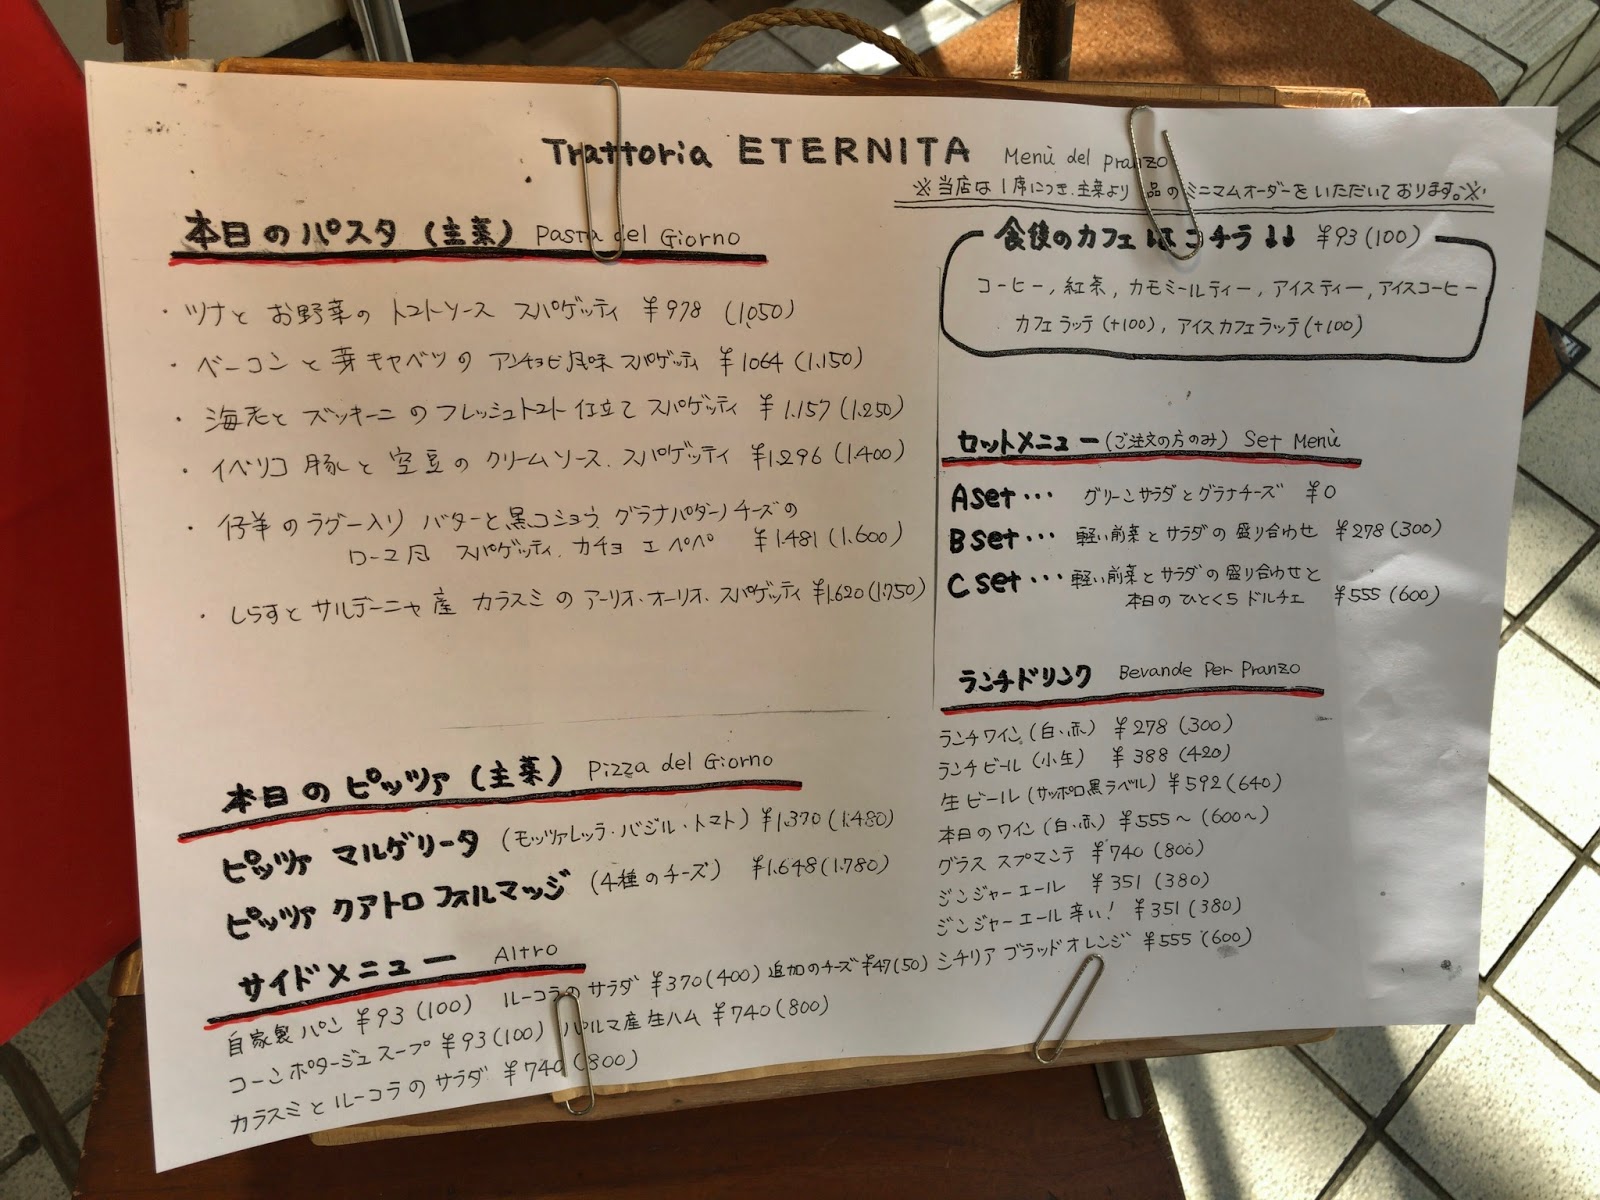 Trattoria ETERNITA Menù del pranzo
※当店は1席につき、主菜より 品のミニマムオーダーをいただいております。※
本日のパスタ(主菜) Pasta del Giorno
・ツナとお野菜のトマトソース スパゲッティ ¥978 (1,050)
・ベーコンと芽キャベツのアンチョビ風味スパゲッティ ¥1064(1.150)
・海老とズッキーニのフレッシュトマト仕立てスパゲッティ ¥1.157(1.250)
・イベリコ豚と空豆のクリームソース.スパゲッティ ¥1.296(1.400)
・仔羊のラグー入りバターと黒コショウ、グラナパダーノチーズの
ローマ風 スパゲッティ.カチョ エ ペペ ¥1.481(1.600)
・しらすとサルデーニャ産カラスミのアーリオ・オーリオ.スパゲッティ ¥1.620(1.750)
本日のピッツァ(主菜) Pizza del Giorno
ピッツァ マルゲリータ (モッツァレッラ・バジル・トマト) ¥1.370(1.480)
ピッツァ クアトロフォルマッジ (4種のチーズ) ¥1.648(1.780)
サイドメニュー Altro
自家製パン ¥93(100) ルーコラのサラダ ¥370(400) 追加のチーズ ¥47(50)
コーンポタージュスープ ¥93(100) パルマ産生ハム ¥740(800)
カラスミとルーコラのサラダ ¥740(800)
食後のカフェはコチラ↓↓ ¥93(100)
コーヒー, 紅茶, カモミールティー, アイスティー, アイスコーヒー
カフェラッテ(+100), アイスカフェラッテ(+100)
セットメニュー(ご注文の方のみ) Set Menù
Aset… グリーンサラダとグラナチーズ ¥0
Bset… 軽い前菜とサラダの盛り合わせ ¥278(300)
Cset… 軽い前菜とサラダの盛り合わせと
本日のひとくちドルチェ ¥555(600)
ランチドリンク Bevande Per Pranzo
ランチワイン(白・赤) ¥278(300)
ランチビール(小生) ¥388(420)
生ビール(サッポロ黒ラベル) ¥592(640)
本日のワイン(白・赤) ¥555～(600～)
グラス スプマンテ ¥740(800)
ジンジャーエール ¥351(380)
ジンジャーエール辛い! ¥351(380)
シチリア ブラッドオレンジ ¥555(600)